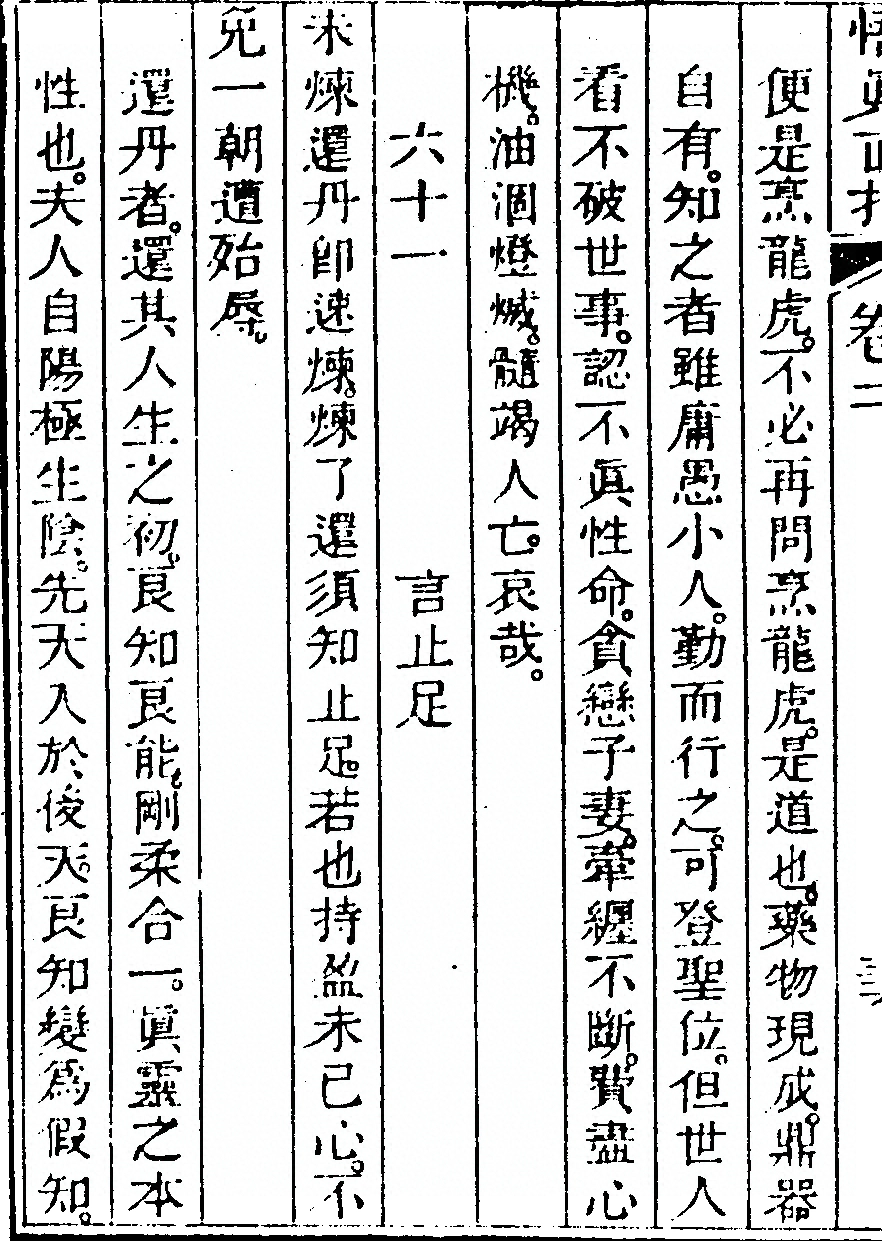 悟眞直指 卷二
便是烹龍虎。不必再問烹龍虎。是道也。藥物現成。鼎器
自有。知之者雖庸愚小人。勤而行之。可登聖位。但世人
看不破世事。認不眞性命。貪戀子妻。牽纏不斷。費盡心
機。油涸燈滅。髓竭人亡。哀哉。
六十一　言止足
未煉還丹卽速煉。煉了還須知止足。若也持盈未已心。不
免一朝遭殆辱。
還丹者。還其人生之初。良知良能。剛柔合一。眞靈之本
性也。夫人自陽極生陰。先天入於後天。良知變爲假知。